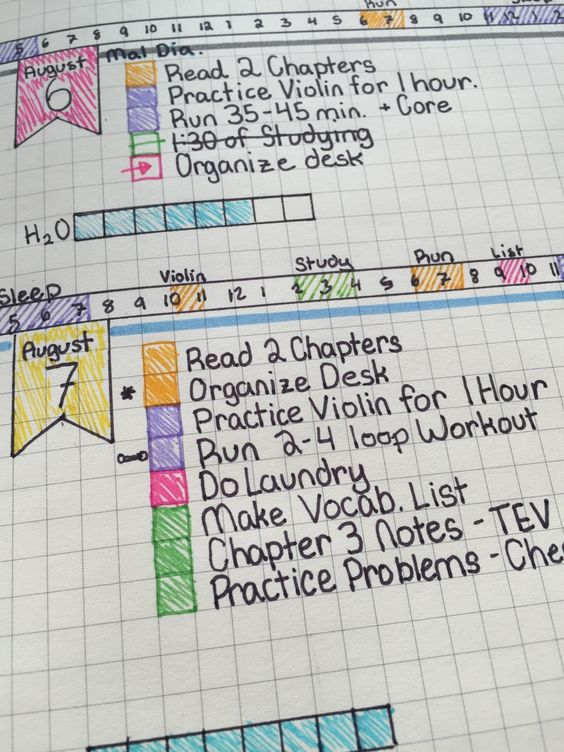 Run
5 6 7 8 9 10 11 12 1 2 3 4 5 6 7 8 9 10 11 12 1 2
August
6
Mal Dia.
Read 2 Chapters
Practice Violin for 1 hour.
Run 35-45 min. + Core
1:30 of Studying
Organize desk
H2O
Sleep Violin Study Run List
5 6 7 8 9 10 11 12 1 2 3 4 5 6 7 8 9 10 11
August
7
Read 2 Chapters
* Organize Desk
Practice Violin for 1 Hour
Run 2-4 loop Workout
Do Laundry
Make Vocab. List
Chapter 3 Notes - TEV
Practice Problems - Che